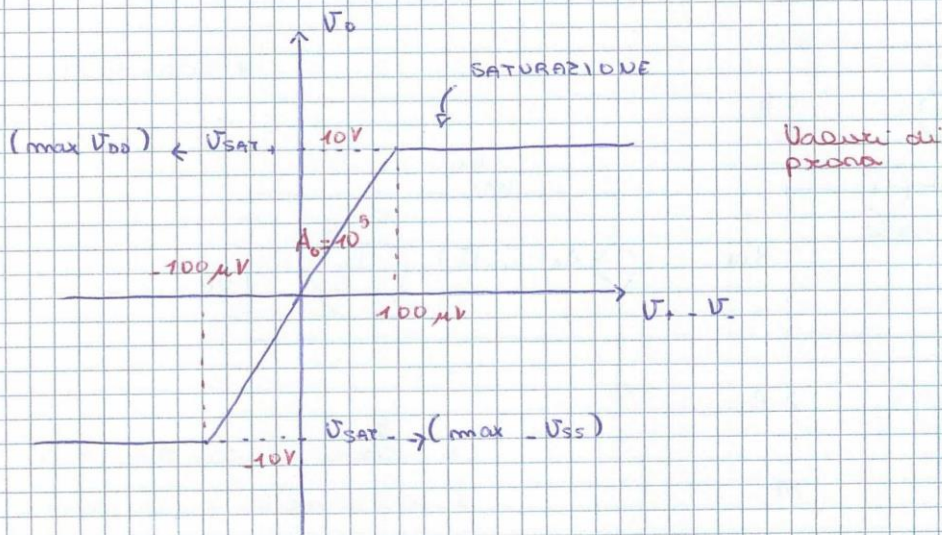 V₀
SATURAZIONE
(max V_DD) ← V_SAT+ 10V
Valori di
prova
A₀=10⁵
-100 μV
100 μV
V₊ - V₋
V_SAT- → (max - V_SS)
-10V